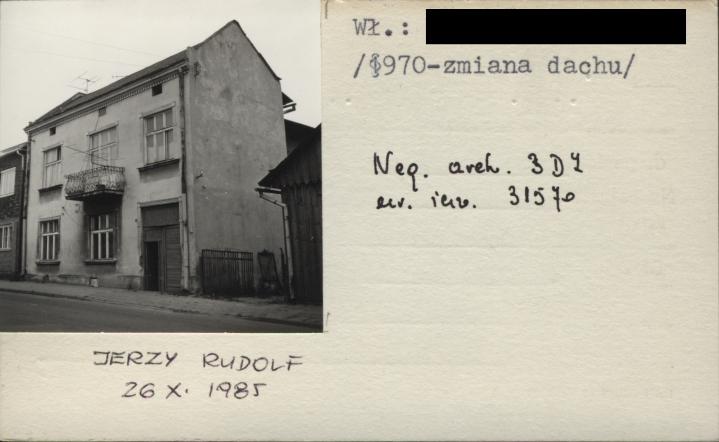 Wł.:
/1970-zmiana dachu/
Neg. arch. 3D7
nr. inw. 31570
JERZY RUDOLF
26 X. 1985